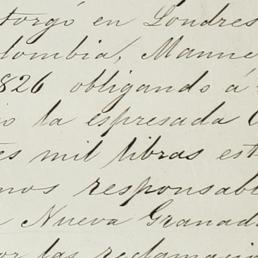 torgó en Londres
olombia, Manue
826 obligando á
o la espresada C
es mil libras est
mos responsabl
Nueva Granad
or las reclamacio